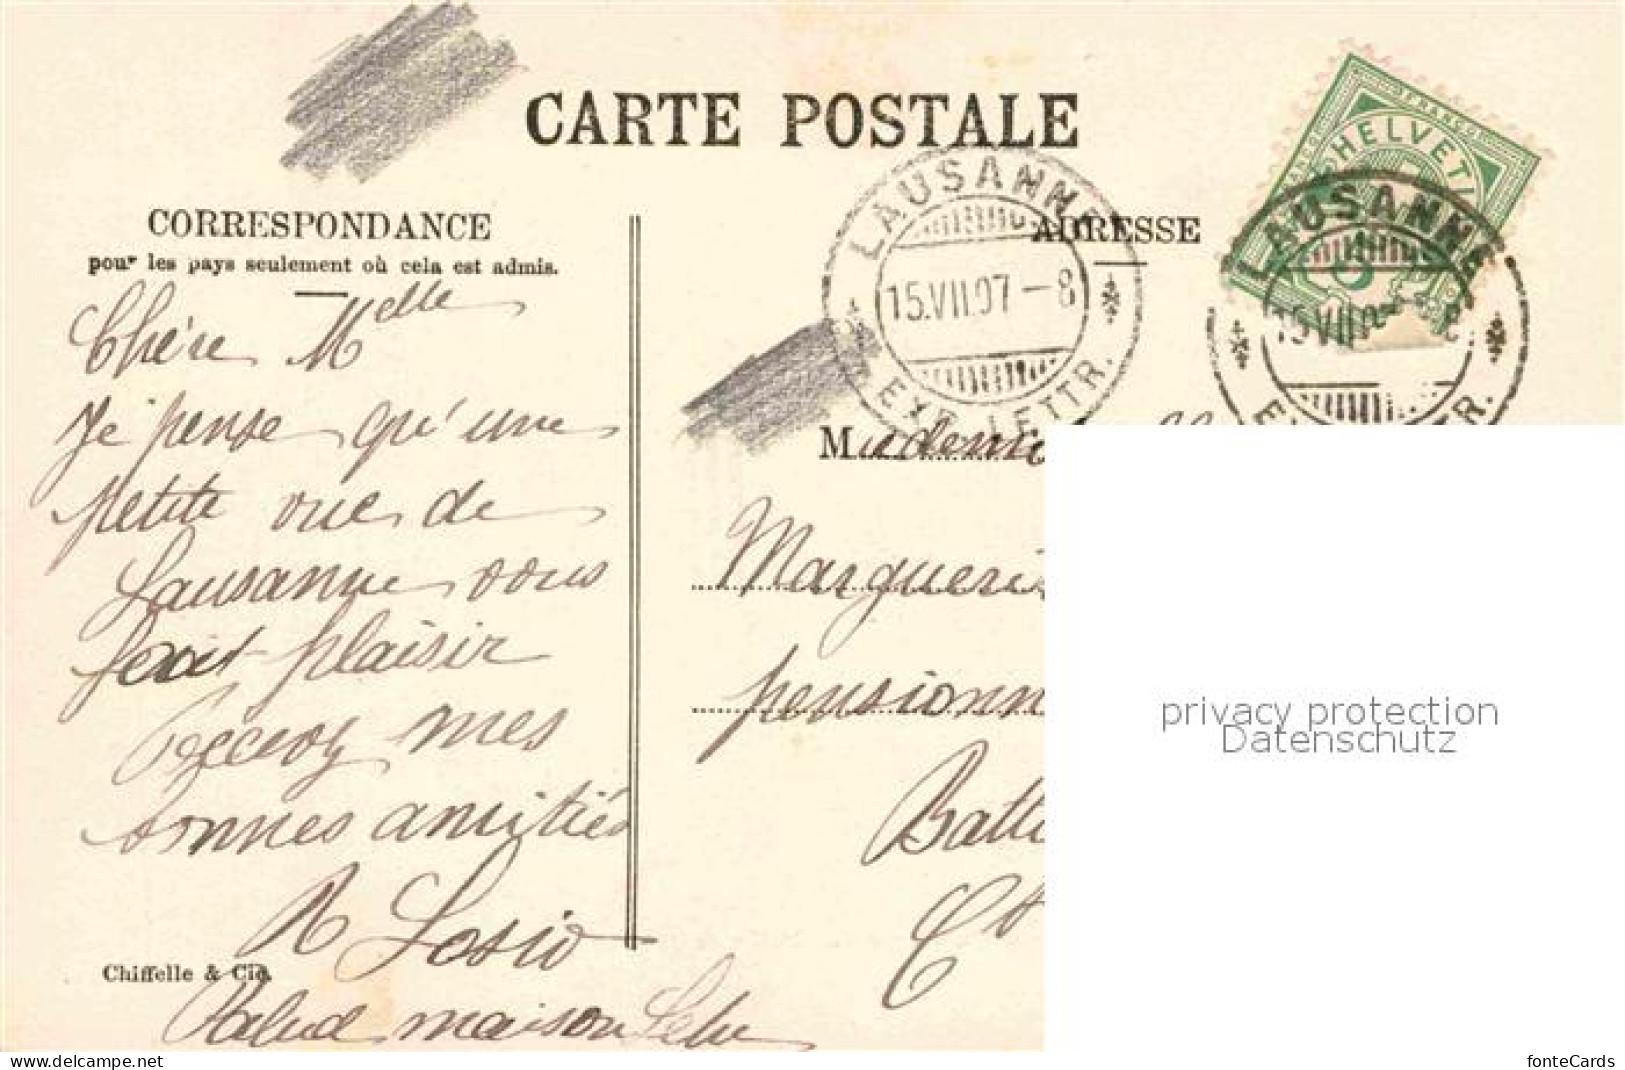 CARTE POSTALE
FRANCO
HELVETIA
LAUSANNE
15.VII.07 – 8
EXP. LETTR.
LAUSANNE
CORRESPONDANCE
pour les pays seulement où cela est admis.
ADRESSE
Chère Melle
Je pense qu'une
petite vue de
Lausanne vous
fait plaisir
Recevez mes
bonnes amitiés
R Losio
Chiffelle & Cie.
Palud maison
Mademoi
Margueri
pensionn
Batt
Ct
privacy protection
Datenschutz
www.delcampe.net
fonteCards